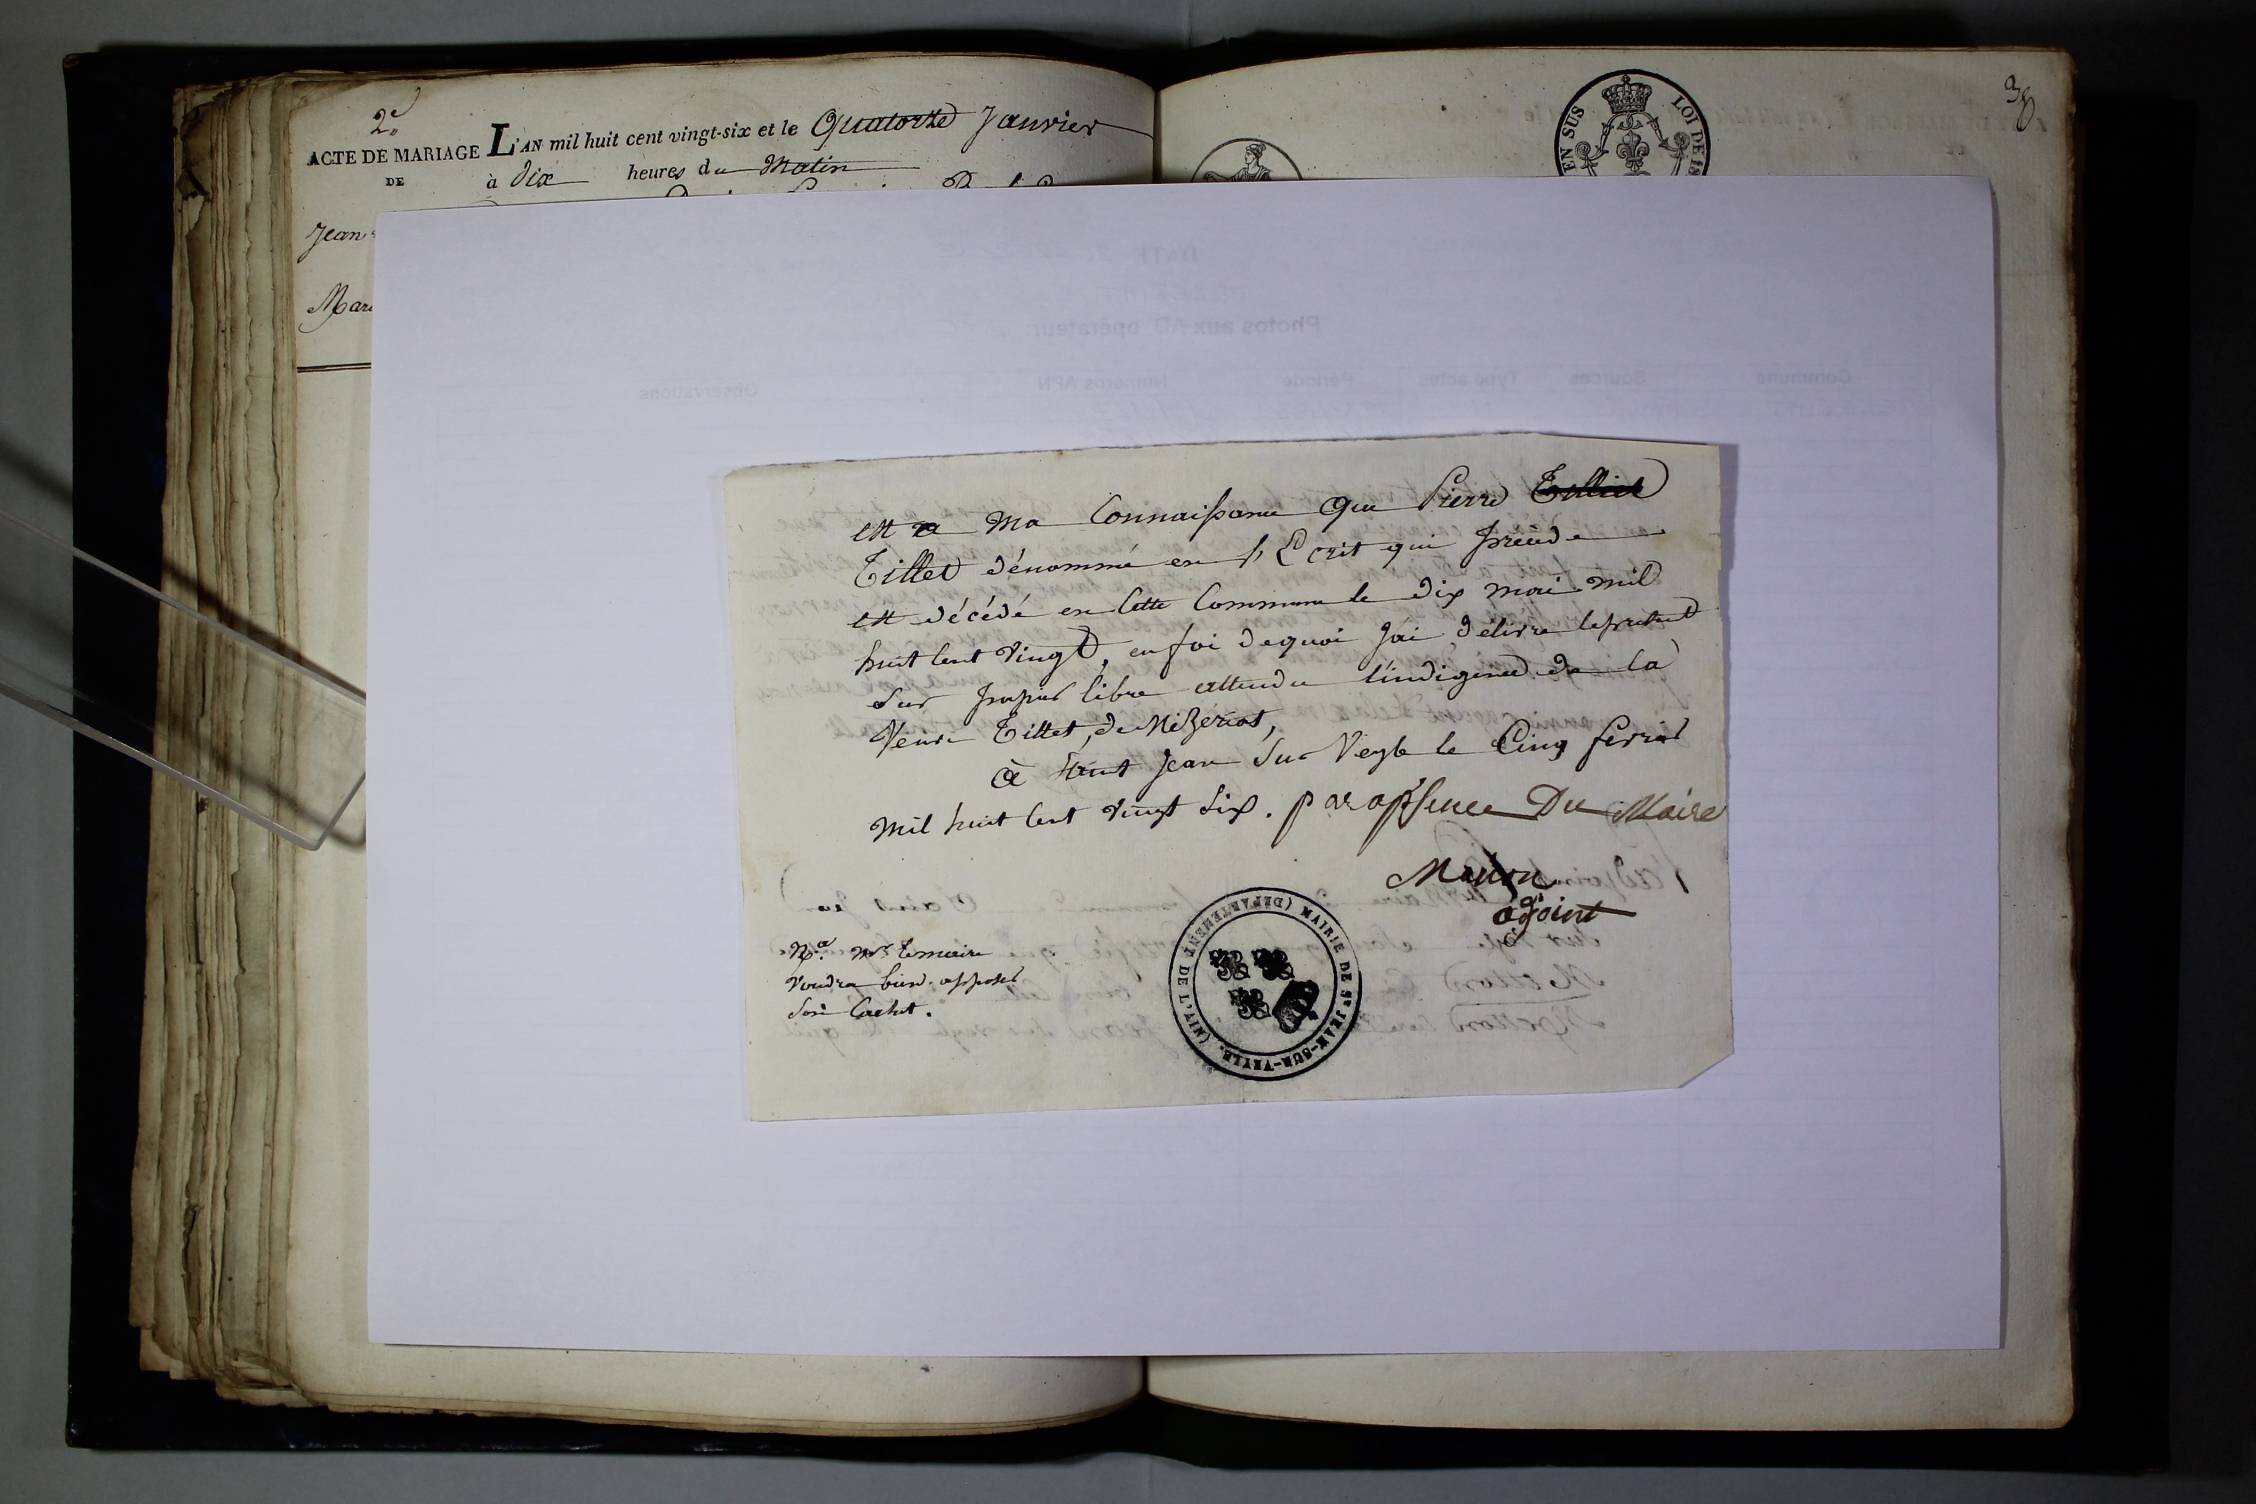 2e.
ACTE DE MARIAGE
DE
Jean
Mari
L'AN mil huit cent vingt-six et le Quatorze Janvier
à dix heures du Matin
38
EN SUS
LOI DE
est a ma Connaissance que Pierre Tilliet
Tillet dénommé en l'Ecrit qui precéde
est décédé en cette Commune le dix mai mil
huit cent vingt, en foi de quoi jai délivré le present
sur papier libre attendu l'indigence de la
veuve Tillet, de Mizeriat,
à saint Jean sur Veyle le cinq fevrier
mil huit cent vingt six. par apsence Du Maire
adjoint
Na. Mr. le maire
voudra bien apposer
son Cachet.
MAIRIE DE St. JEAN-SUR-VEYLE. (DÉPARTEMENT DE L'AIN)
DATE
Photos aux AD opérateur:
Commune Sources Type actes Période Numéros APN Observations